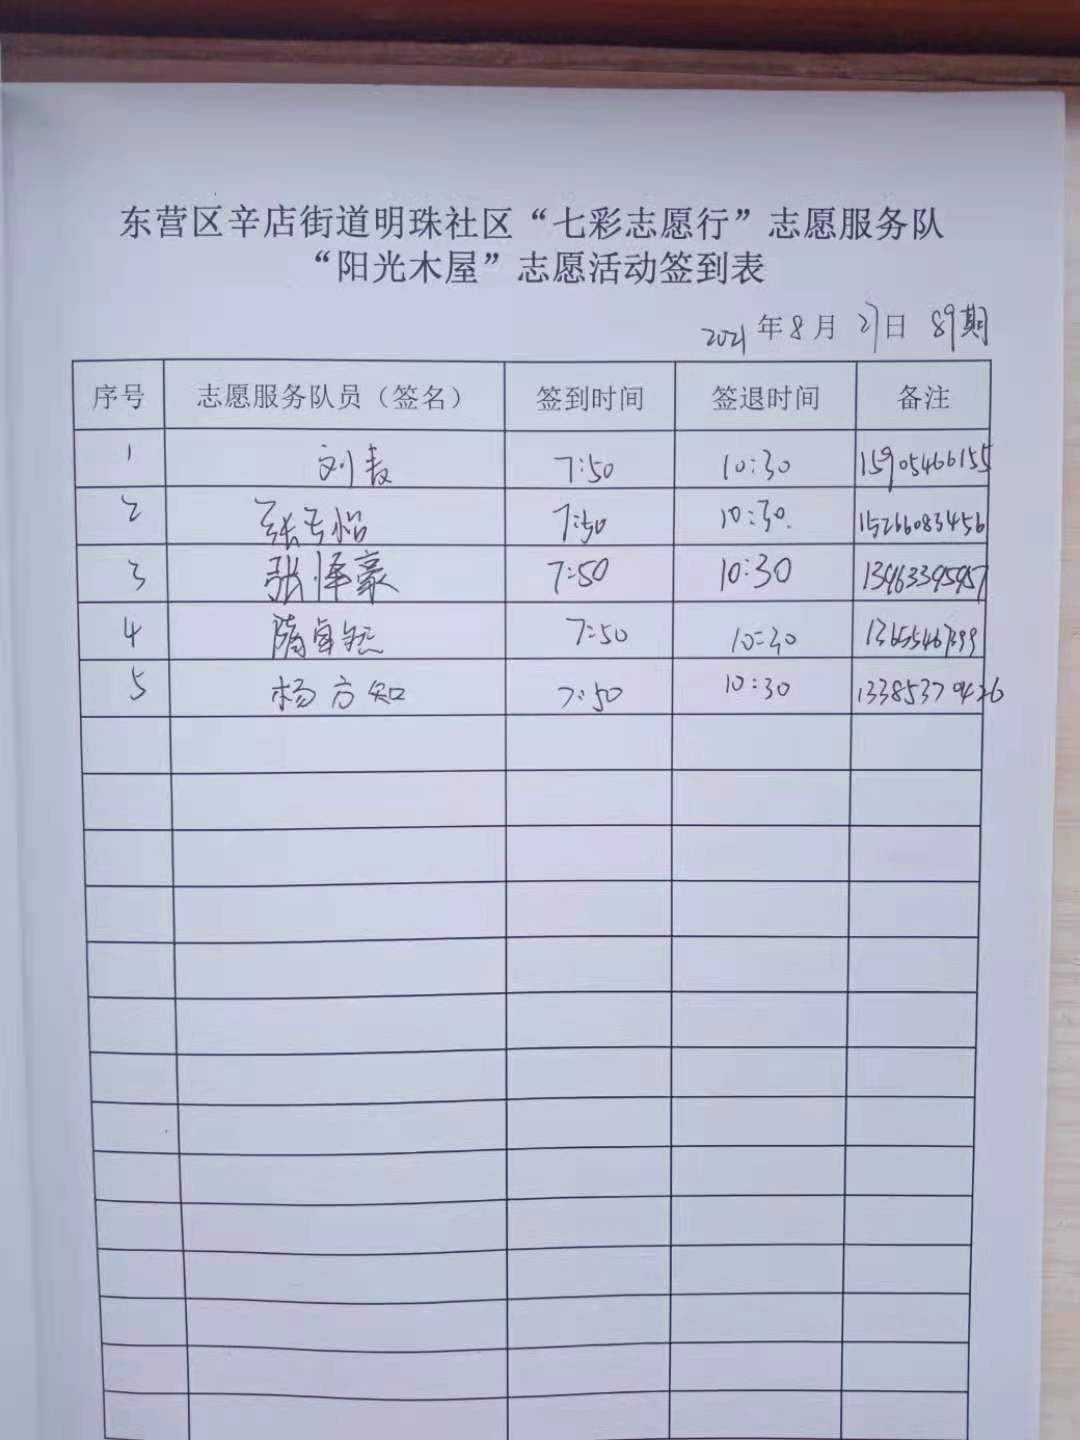 东营区辛店街道明珠社区“七彩志愿行”志愿服务队
“阳光木屋”志愿活动签到表
2021年8月27日 89期
序号 志愿服务队员（签名） 签到时间 签退时间 备注
1 刘青 7:50 10:30 15905466155
2 张云怡 7:50 10:30. 15266083456
3 张泽豪 7:50 10:30 13963395957
4 隋卓然 7:50 10:30
5 杨方知 7:50 10:30 13385370426